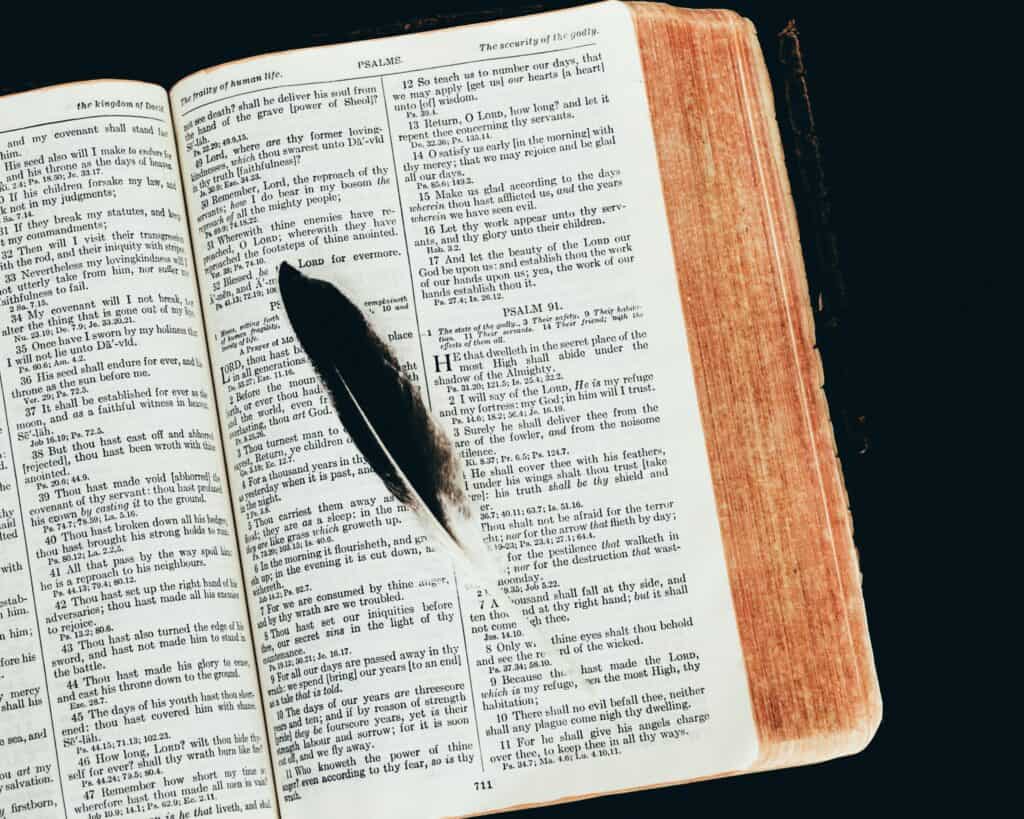 the kingdom of David
and my covenant shall stand fast
him.
His seed also will I make to endure for
and his throne as the days of heaven.
Ps. 18.50; Je. 33.17.
If his children forsake my law, and
not in my judgments;
Sa. 7.14.
31 If they break my statutes, and keep
my commandments;
32 Then will I visit their transgression
with the rod, and their iniquity with stripes.
33 Nevertheless my lovingkindness will I
not utterly take from him, nor suffer my
faithfulness to fail.
2 Sa. 7.15.
34 My covenant will I not break, nor
alter the thing that is gone out of my lips.
Nu. 23.19; De. 7.9; Je. 33.20,21.
35 Once have I sworn by my holiness that
I will not lie unto Dā'-vid.
Ps. 60.6; Am. 4.2.
36 His seed shall endure for ever, and his
throne as the sun before me.
Ver. 29; Ps. 72.5.
37 It shall be established for ever as the
moon, and as a faithful witness in heaven.
Sē'-läh.
Job 16.19; Ps. 72.5.
38 But thou hast cast off and abhorred
[rejected], thou hast been wroth with thine
anointed.
Ps. 20.6; 44.9.
39 Thou hast made void [abhorred] the
covenant of thy servant: thou hast profaned
his crown by casting it to the ground.
Ps. 74.7; 78.59; La. 5.16.
40 Thou hast broken down all his hedges;
thou hast brought his strong holds to ruin.
Ps. 80.12; La. 2.2,5.
41 All that pass by the way spoil him:
he is a reproach to his neighbours.
Ps. 44.13; 79.4; 80.12.
42 Thou hast set up the right hand of his
adversaries; thou hast made all his enemies
to rejoice.
Ps. 13.2; 80.6.
43 Thou hast also turned the edge of his
sword, and hast not made him to stand in
the battle.
44 Thou hast made his glory to cease,
and cast his throne down to the ground.
Eze. 28.7.
45 The days of his youth hast thou short-
ened: thou hast covered him with shame.
Sē'-läh.
Ps. 44.15; 71.13; 102.23.
46 How long, LORD? wilt thou hide thy-
self for ever? shall thy wrath burn like fire?
Ps. 44.24; 79.5; 80.4.
47 Remember how short my time is:
wherefore hast thou made all men in vain?
Job 10.9; 14.1; Ps. 62.9; Ec. 2.11.
is he that liveth, and shall
The frailty of human life.
PSALMS.
The security of the godly.
not see death? shall he deliver his soul from
the hand of the grave [power of Sheol]?
Sē'-läh.
Ps. 22.29; 49.9,15.
49 Lord, where are thy former loving-
kindnesses, which thou swarest unto Dā'-vid
in thy truth [faithfulness]?
50 Remember, Lord, the reproach of thy
servants; how I do bear in my bosom the
reproach of all the mighty people;
Ps. 69.9; 74.18,22.
51 Wherewith thine enemies have re-
proached, O LORD; wherewith they have
reproached the footsteps of thine anointed.
52 Blessed be LORD for evermore.
Amen, and
place
LORD, thou hast
in all generations.
2 Before the
or ever thou
and the world, even
everlasting, thou art God.
3 Thou turnest man to
Return, ye children
4 For a thousand years in thy
yesterday when it is past, and
in the night.
5 Thou carriest them away as
flood; they are as a sleep: in the
they are like grass which groweth up.
6 In the morning it flourisheth, and
up; in the evening it is cut down,
withereth.
7 For we are consumed by thine anger,
and by thy wrath are we troubled.
8 Thou hast set our iniquities before
thee, our secret sins in the light of thy
countenance.
9 For all our days are passed away in thy
wrath: we spend [bring] our years [to an end]
as a tale that is told.
10 The days of our years are threescore
years and ten; and if by reason of strength
they be fourscore years, yet is their
strength labour and sorrow; for it is soon
cut off, and we fly away.
11 Who knoweth the power of thine
anger? even according to thy fear, so is thy
wrath.
12 So teach us to number our days, that
we may apply [get us] our hearts [a heart]
unto [of] wisdom.
Ps. 39.4.
13 Return, O LORD, how long? and let it
repent thee concerning thy servants.
De. 32.36; Ps. 135.14.
14 O satisfy us early [in the morning] with
thy mercy; that we may rejoice and be glad
all our days.
Ps. 85.6; 149.2.
15 Make us glad according to the days
wherein thou hast afflicted us, and the years
wherein we have seen evil.
16 Let thy work appear unto thy serv-
ants, and thy glory unto their children.
Hab. 3.2.
17 And let the beauty of the LORD our
God be upon us: and establish thou the work
of our hands upon us; yea, the work of our
hands establish thou it.
Ps. 27.4; Is. 26.12.
PSALM 91.
1 The state of the godly. 3 Their safety. 9 Their habita-
tion. 11 Their servants. 14 Their friend; with the
effects of them all.
HE that dwelleth in the secret place of the
most High shall abide under the
shadow of the Almighty.
Ps. 31.20; 121.5; Is. 25.4; 32.2.
2 I will say of the LORD, He is my refuge
and my fortress: my God; in him will I trust.
Ps. 14.6; 18.2; 56.4; Je. 16.19.
3 Surely he shall deliver thee from the
snare of the fowler, and from the noisome
pestilence.
Ki. 8.37; Ps. 6.5; Ps. 124.7.
4 He shall cover thee with his feathers,
under his wings shalt thou trust [take
his truth shall be thy shield and
36.7; 40.11; 63.7; Is. 51.16.
Thou shalt not be afraid for the terror
nor for the arrow that flieth by day;
Ps. 23.4; 27.1; 64.4.
for the pestilence that walketh in
nor for the destruction that wast-
noonday.
Job 5.22.
7 A thousand shall fall at thy side, and
ten thou and at thy right hand; but it shall
not come nigh thee.
Jos. 14.10.
8 Only thine eyes shalt thou behold
and see the re d of the wicked.
Ps. 37.34; 58.10.
9 Because hast made the LORD,
which is my refuge, the most High, thy
habitation;
10 There shall no evil befall thee, neither
shall any plague come nigh thy dwelling.
11 For he shall give his angels charge
over thee, to keep thee in all thy ways.
Ps. 34.7; Ma. 4.6; La. 4.10,11.
711